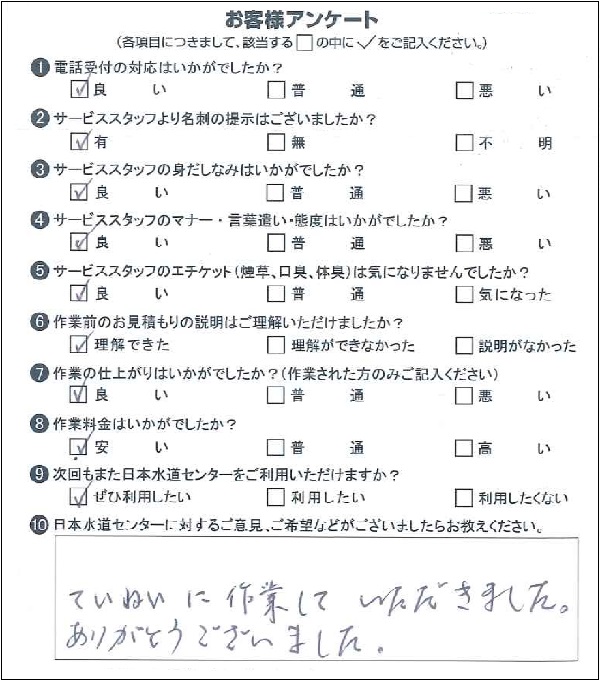 お客様アンケート
(各項目につきまして、該当する□の中に✓をご記入ください。)
❶電話受付の対応はいかがでしたか?
☑良い □普通 □悪い
❷サービススタッフより名刺の提示はございましたか?
☑有 □無 □不明
❸サービススタッフの身だしなみはいかがでしたか?
☑良い □普通 □悪い
❹サービススタッフのマナー・言葉遣い・態度はいかがでしたか?
☑良い □普通 □悪い
❺サービススタッフのエチケット(煙草、口臭、体臭)は気になりませんでしたか?
☑良い □普通 □気になった
❻作業前のお見積もりの説明はご理解いただけましたか?
☑理解できた □理解ができなかった □説明がなかった
❼作業の仕上がりはいかがでしたか?(作業された方のみご記入ください)
☑良い □普通 □悪い
❽作業料金はいかがでしたか?
☑安い □普通 □高い
❾次回もまた日本水道センターをご利用いただけますか?
☑ぜひ利用したい □利用したい □利用したくない
❿日本水道センターに対するご意見、ご希望などがございましたらお教えください。
ていねいに作業していただきました。
ありがとうございました。